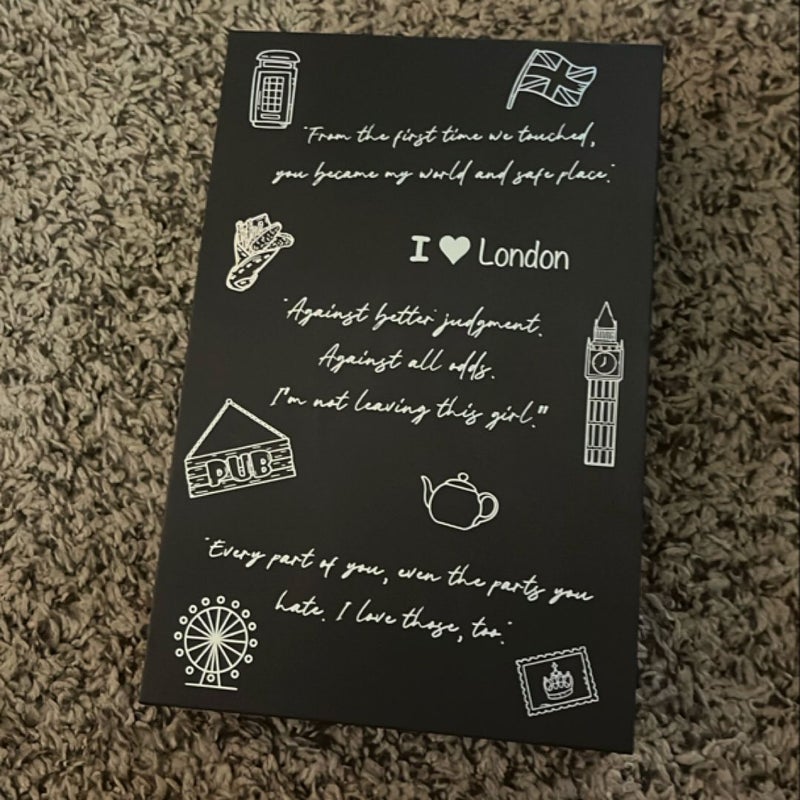 "From the first time we touched,
you became my world and safe place."
I ♥ London
"Against better judgment.
Against all odds.
I'm not leaving this girl."
PUB
"Every part of you, even the parts you
hate. I love those, too."